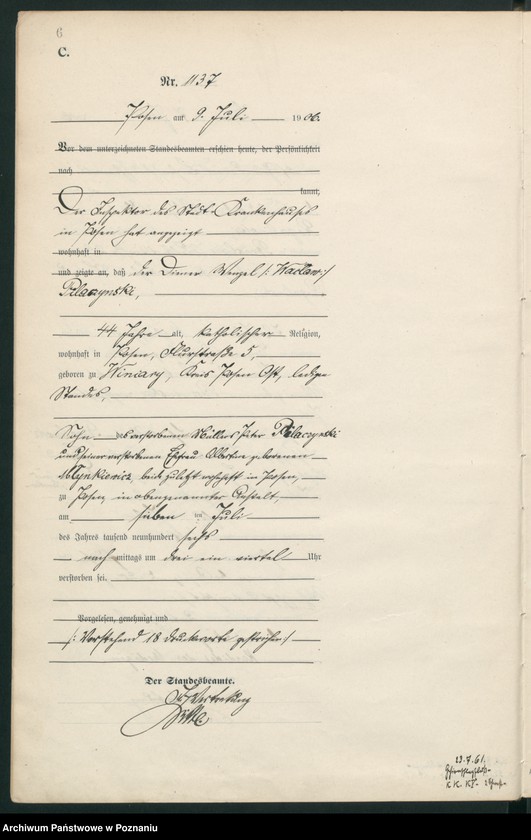 6
C.
Nr. 1137
Posen am 9. Juli 1906.
Vor dem unterzeichneten Standesbeamten erschien heute, der Persönlichkeit
nach
kannt,
Der Inspektor des Stadt-Krankenhauses
in Posen hat angezeigt
wohnhaft in
und zeigte an, daß der Diener Wenzel /: Waclaw :/
Pilaczynski,
44 Jahre alt, katholischer Religion,
wohnhaft in Posen, Flurstraße 5,
geboren zu Winiary, Kreis Posen Ost, ledigen
Standes,
Sohn des verstorbenen Müllers Peter Pilaczynski
und seiner verstorbenen Ehefrau Albertine geborenen
Mlynkiewicz, beide zuletzt wohnhaft in Posen,
zu Posen, in obengenannter Anstalt,
am sieben ten Juli
des Jahres tausend neunhundert sechs
nach mittags um drei ein viertel Uhr
verstorben sei.
Vorgelesen, genehmigt und
/: Vorstehend 18 Druckworte gestrichen :/
Der Standesbeamte.
In Vertretung
23.7.61.
Archiwum Państwowe w Poznaniu